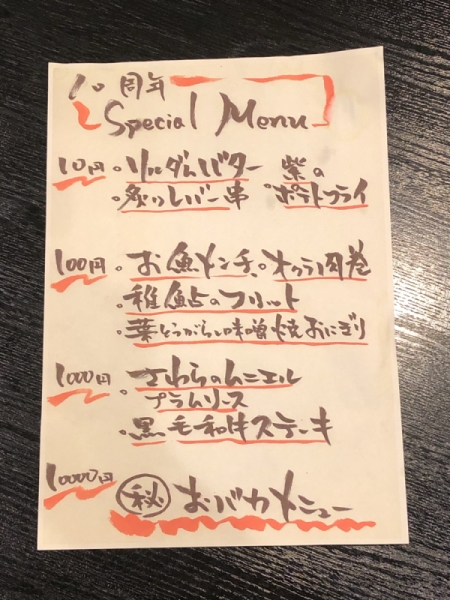 10周年
Special Menu
10円 。リルダムバター 紫の
。炙りレバー串 。ポテトフライ
100円 。お魚メンチ 。オクラ肉巻
。稚鮎のフリット
。葉とうがらし味噌焼おにぎり
1000円 。さわらのムニエル
プラムソース
。黒毛和牛ステーキ
10000円 ㊙ おバカメニュー